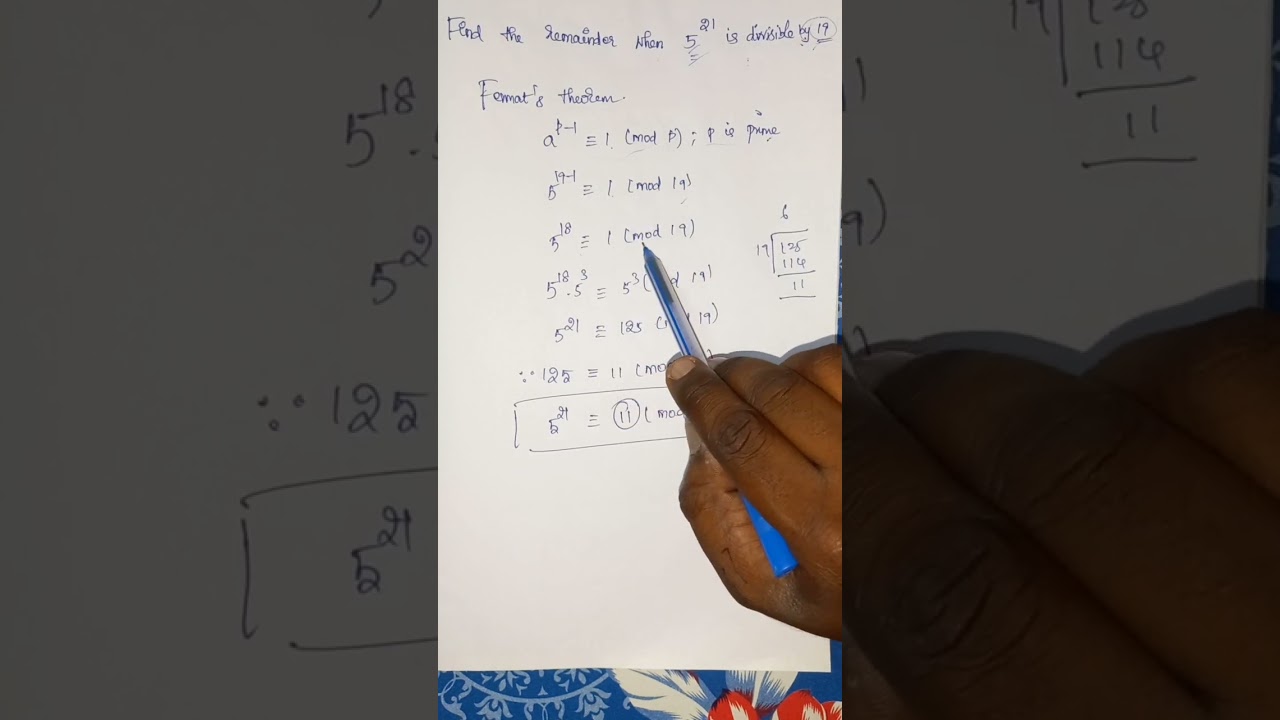 Find the remainder when 5^21 is divisible by 19
Fermat's theorem.
a^p-1 ≡ 1 (mod p) ; p is prime
5^19-1 ≡ 1 (mod 19)
5^18 ≡ 1 (mod 19)
5^18 . 5^3 ≡ 5^3 ( d 19)
5^21 ≡ 125 ( 19)
∵ 125 ≡ 11 (mod
5^21 ≡ 11 ( mod
6
19 125
114
11